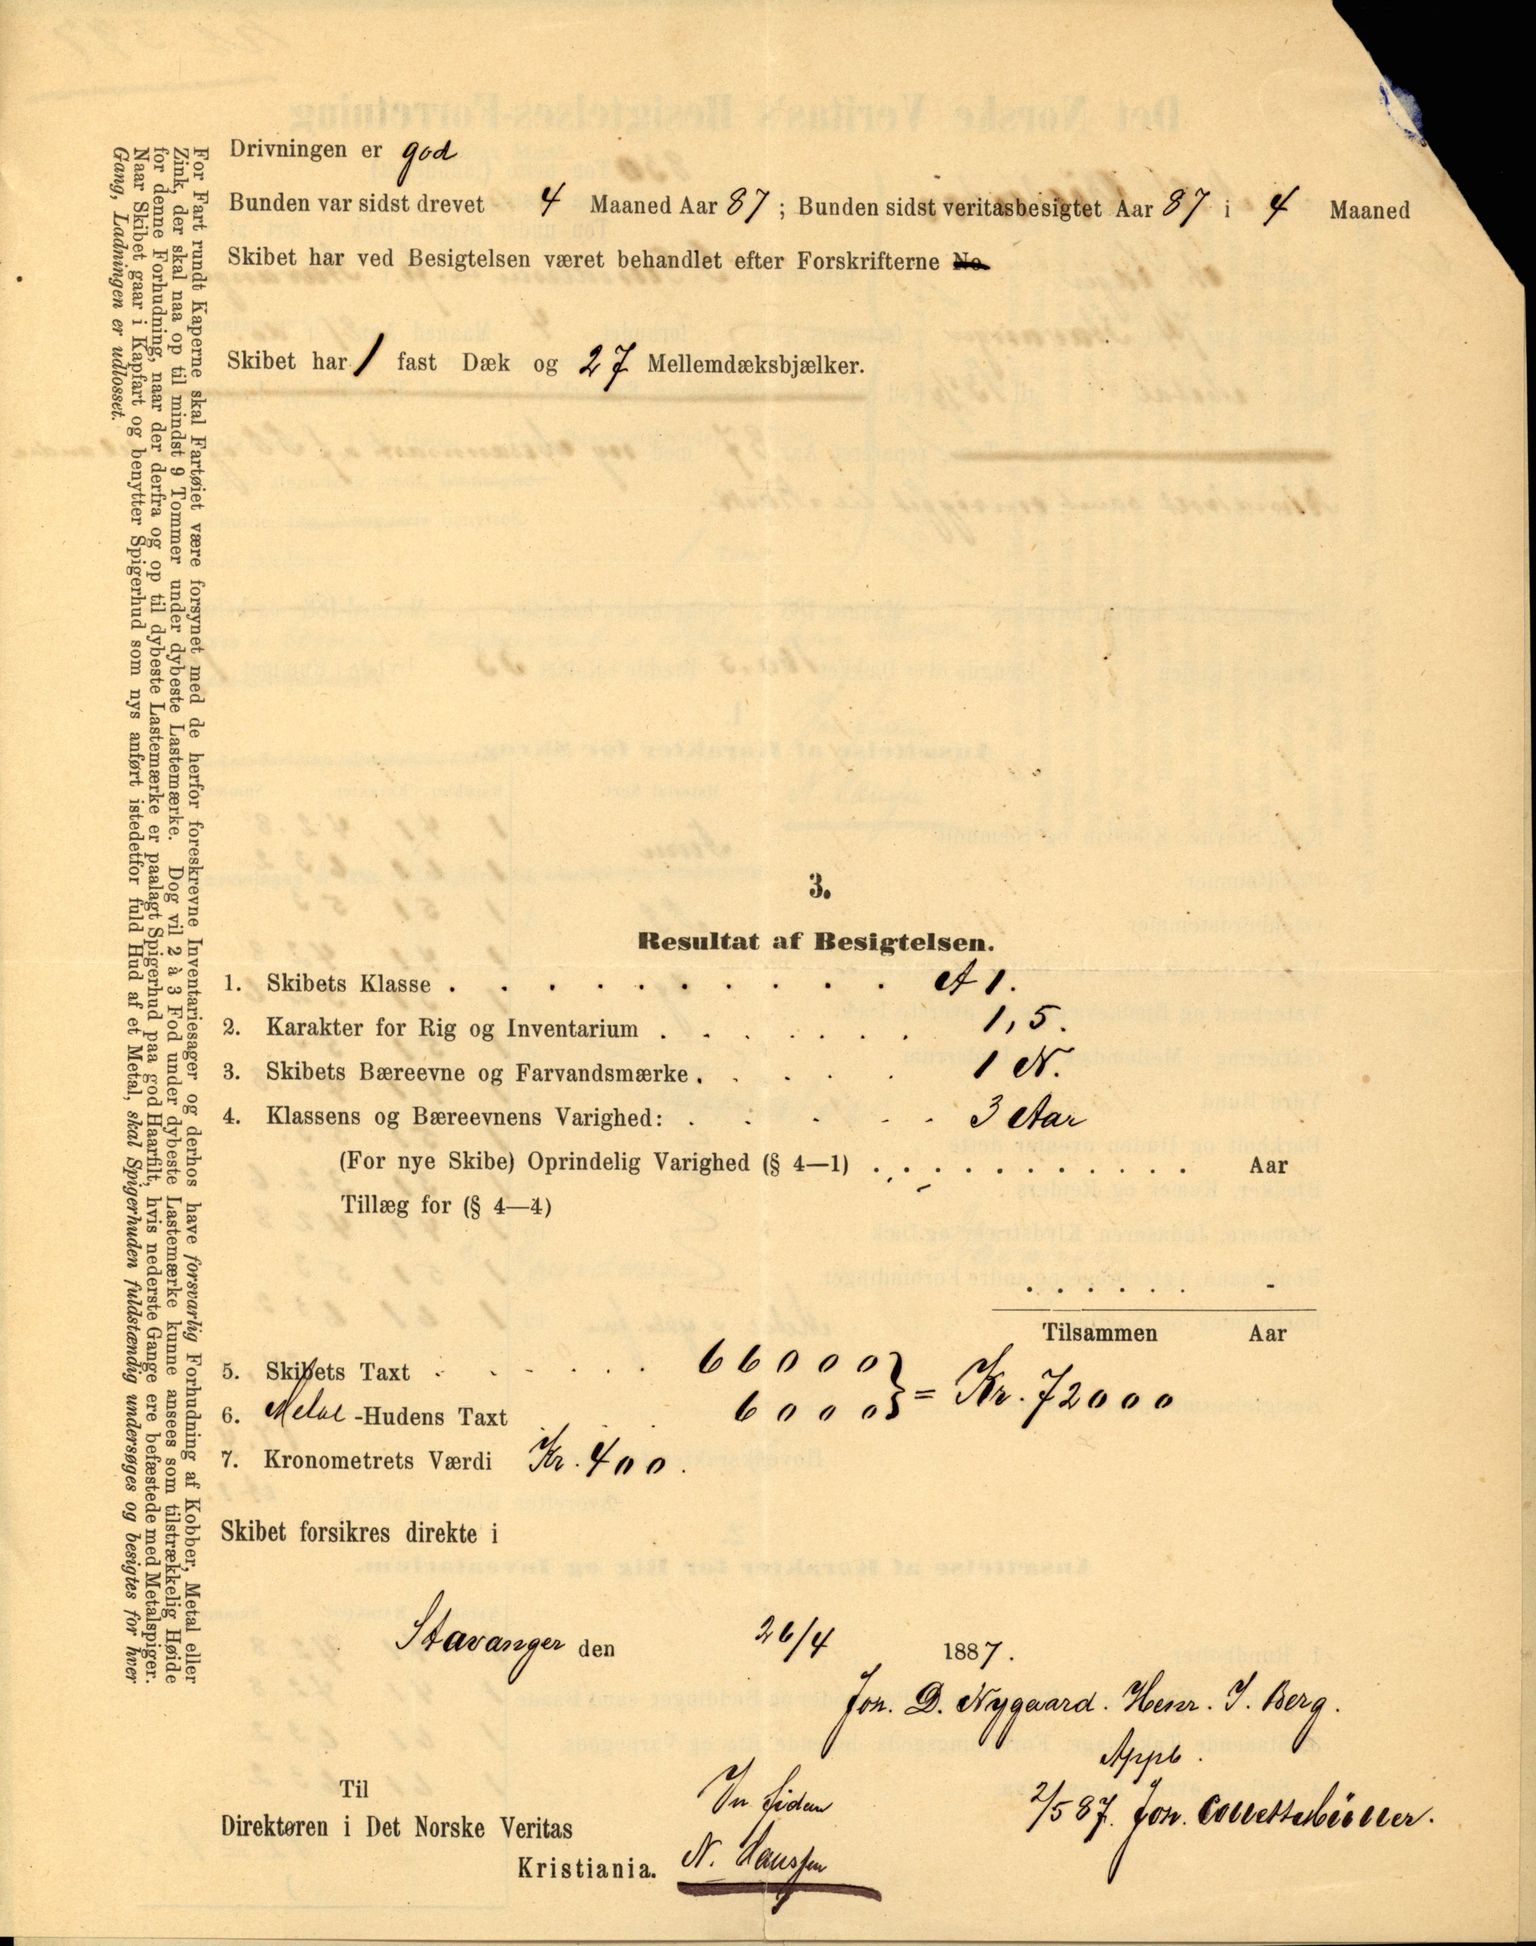 Drivningen er god
Bunden var sidst drevet 4 Maaned Aar 87; Bunden sidst veritasbesigtet Aar 87 i 4 Maaned
Skibet har ved Besigtelsen været behandlet efter Forskrifterne No.
Skibet har 1 fast Dæk og 27 Mellemdæksbjælker.
For Fart rundt Kaperne skal Fartøiet være forsynet med de herfor foreskrevne Inventariesager og derhos have forsvarlig Forhudning af Kobber, Metal eller
Zink, der skal naa op til mindst 9 Tommer under dybeste Lastemærke. Dog vil 2 à 3 Fod under dybeste Lastemærke kunne ansees som tilstrækkelig Høide
for denne Forhudning, naar der derfra og op til dybeste Lastemærke er paalagt Spigerhud paa god Haarfilt, hvis nederste Gange ere befæstede med Metalspiger.
Naar Skibet gaar i Kapfart og benytter Spigerhud som nys anført istedetfor fuld Hud af et Metal, skal Spigerhuden fuldstændig undersøges og besigtes for hver
Gang, Ladningen er udlosset.
3.
Resultat af Besigtelsen.
1. Skibets Klasse . . . . . . . . . . A 1.
2. Karakter for Rig og Inventarium . . . . . . . 1,5.
3. Skibets Bæreevne og Farvandsmærke . . . . . 1 N.
4. Klassens og Bæreevnens Varighed: . . . . . 3 Aar
(For nye Skibe) Oprindelig Varighed (§ 4—1) . . . . . . . . . . . Aar
Tillæg for (§ 4—4)
. . . . . . -
Tilsammen Aar
5. Skibets Taxt . . . . . . 66000
6. Metal-Hudens Taxt 6000 } = Kr. 72000
7. Kronometrets Værdi Kr. 400.
Skibet forsikres direkte i
Stavanger den 26/4 1887.
Jon. D. Nygaard. Henr. I. Berg.
Appb.
Til
2/5 87. Jon. Collett Müller.
Direktøren i Det Norske Veritas
Kristiania. N. Hanssen